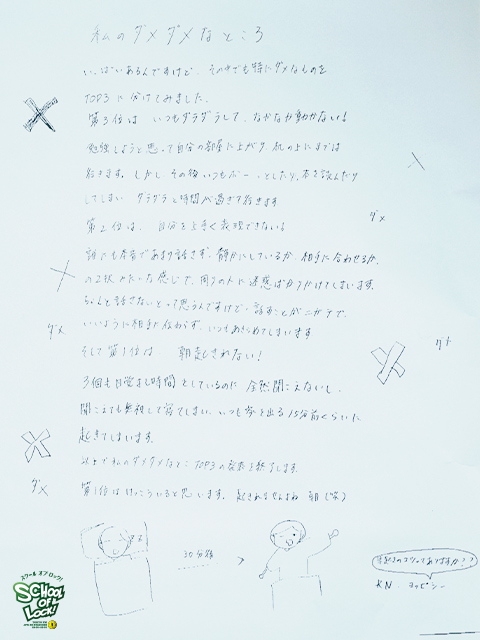 私のダメダメなところ
いっぱいあるんですけど、その中でも特にダメなものを
TOP3に分けてみました。
第3位は いつもダラダラして、なかなか動かない!
勉強しようと思って自分の部屋に上がり、机の上にまでは
行きます。しかし その後いつもボーっとしたり、本を読んだり
してしまい ダラダラと時間が過ぎて行きます
第2位は、自分を上手く表現できない!
誰にも本音であまり話さず、静かにしているか、相手に合わせるか、
の2択みたいな感じで、周りの人に迷惑ばかりかけてしまいます。
ちゃんと話さないとって思うんですけど、話すことがニガテで、
いいように相手に伝わらず、いつもあきらめてしまいます
そして第1位は 朝起きれない!
3個も目覚まし時間をしているのに 全然聞こえないし、
聞こえても無視して寝てしまい、いつも家を出る15分前くらいに
起きてしまいます。
以上で私のダメダメなとこTOP3の発表を終了します。
第1位はけっこういると思います。起きれませんよね 朝(笑)
ダメ
ダメ
ダメ
30分後
早起きのコツってありますか??
RN.
スクール オブ ロック!
SCHOOL OF LOCK!